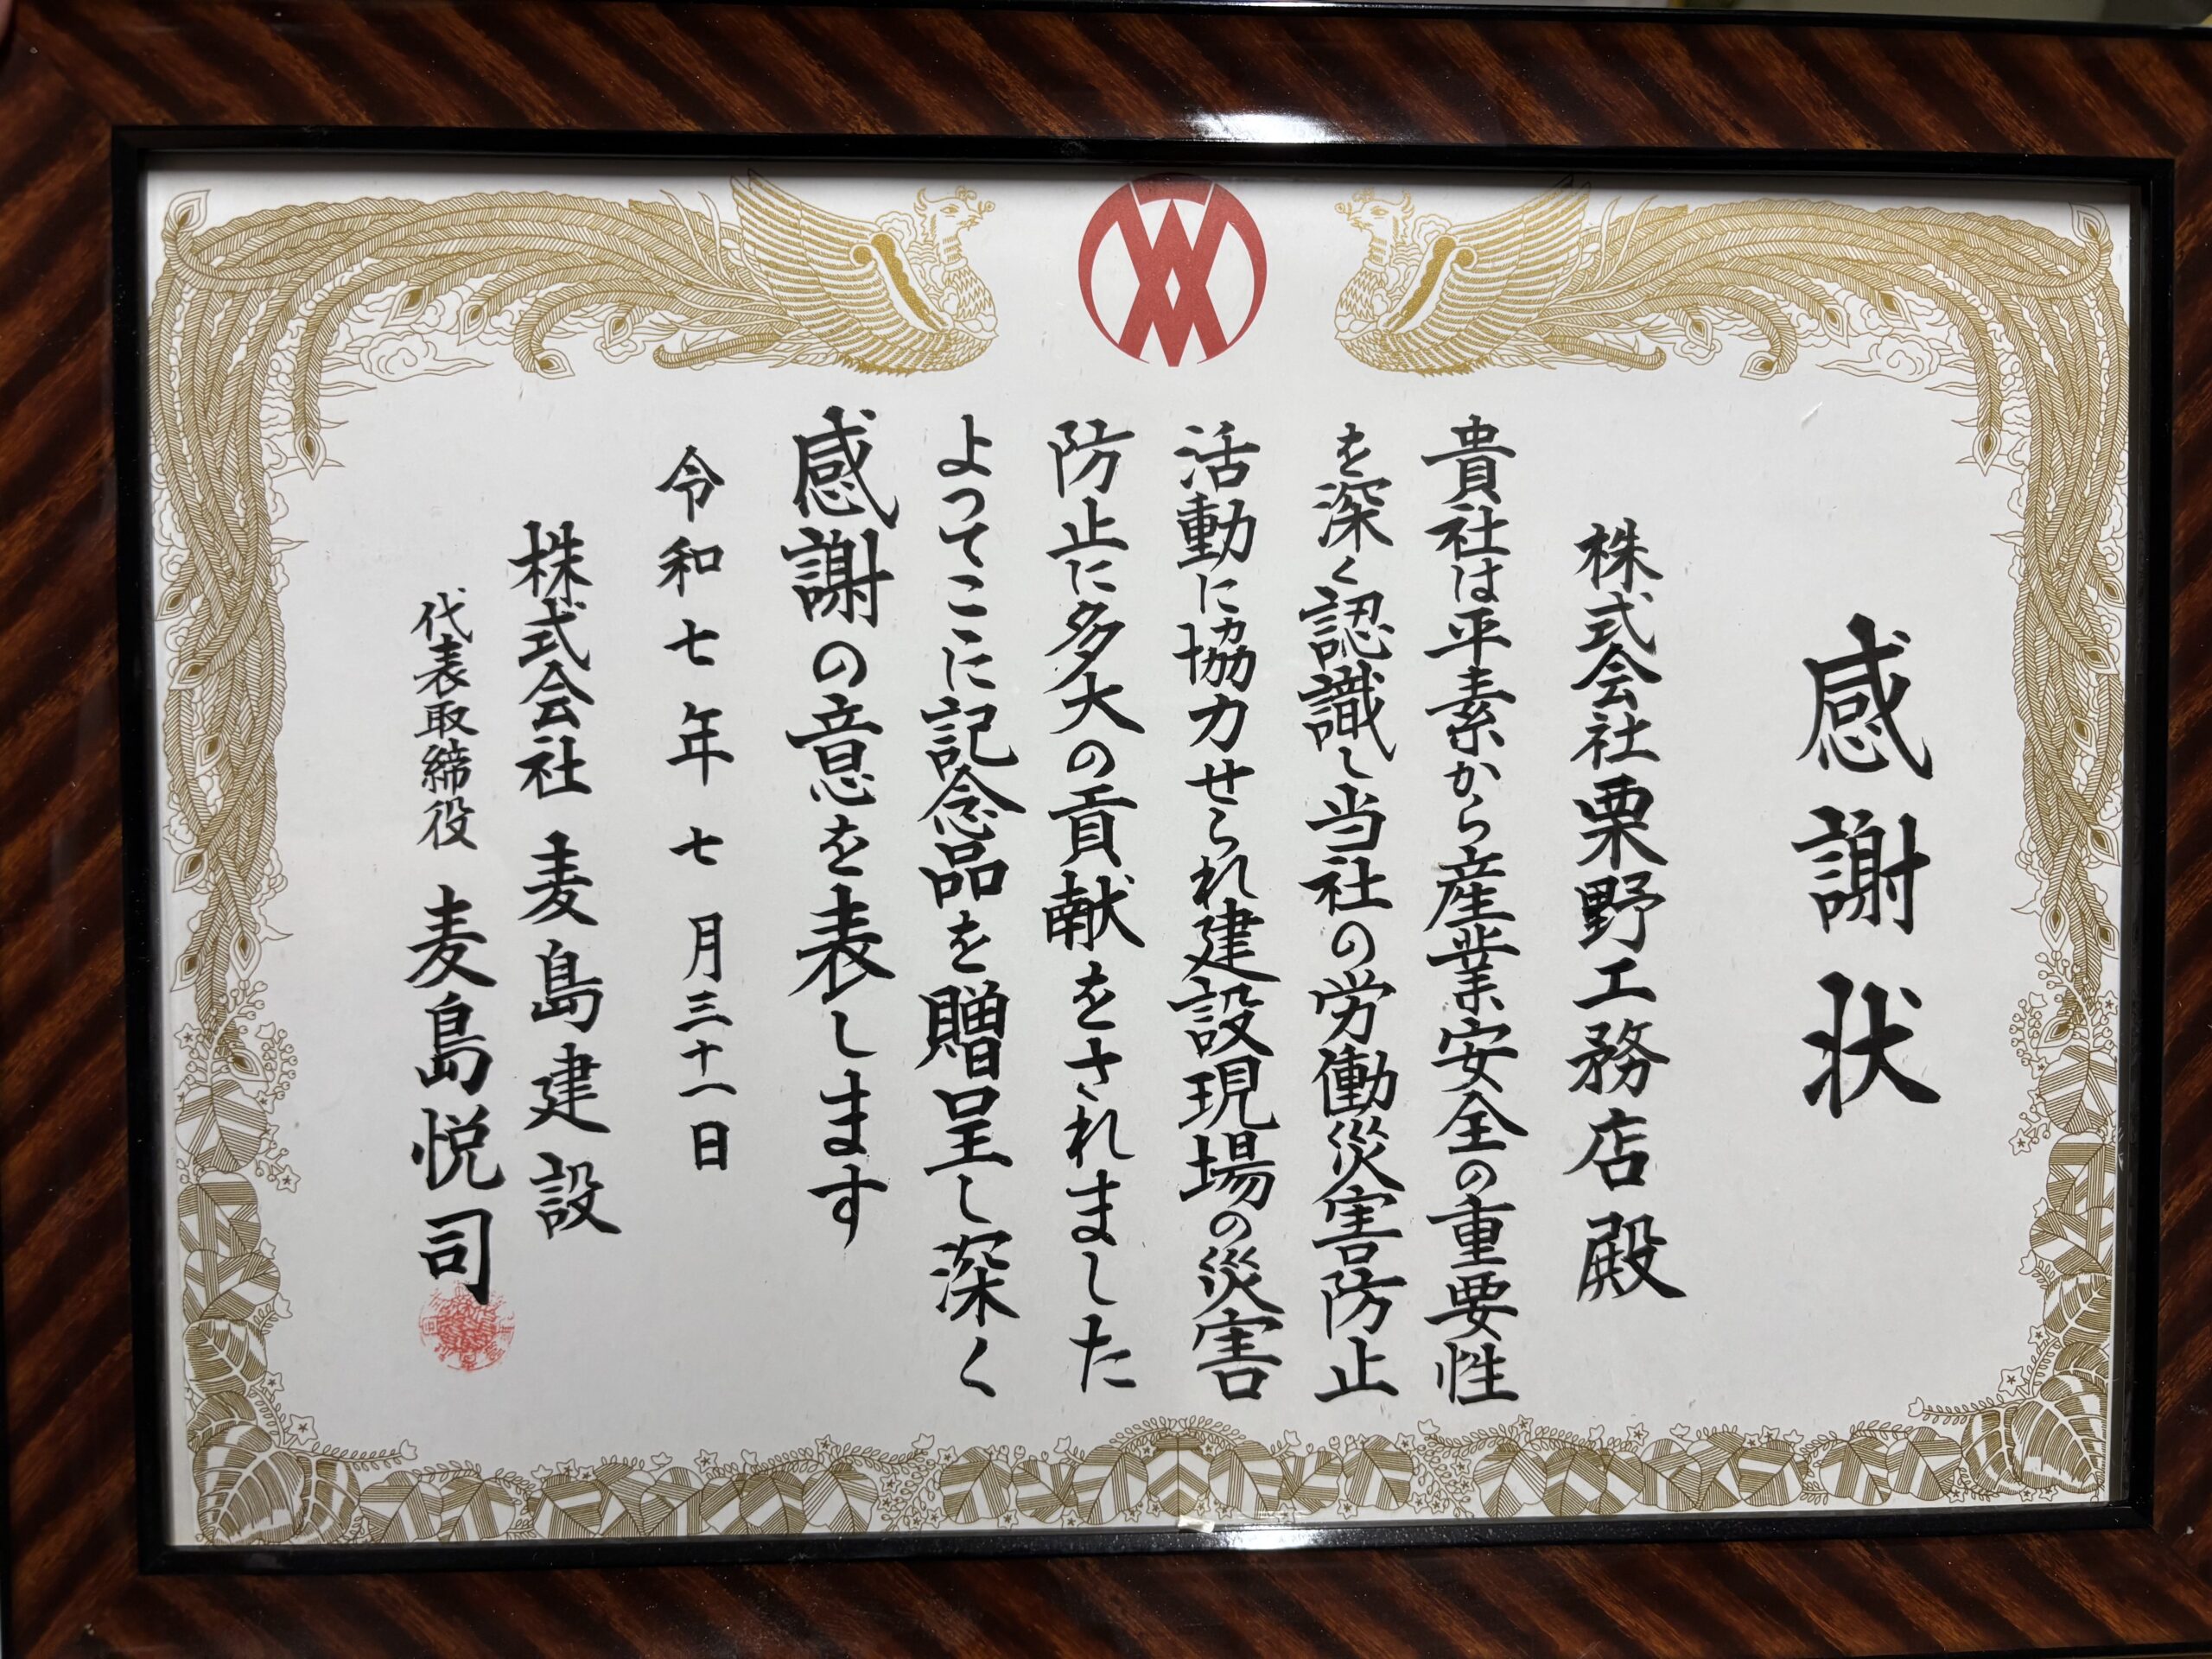 感謝状
株式会社栗野工務店殿
貴社は平素から産業安全の重要性
を深く認識し当社の労働災害防止
活動に協力せられ建設現場の災害
防止に多大の貢献をされました
よってここに記念品を贈呈し深く
感謝の意を表します
令和七年七月三十一日
株式会社麦島建設
代表取締役 麦島悦司